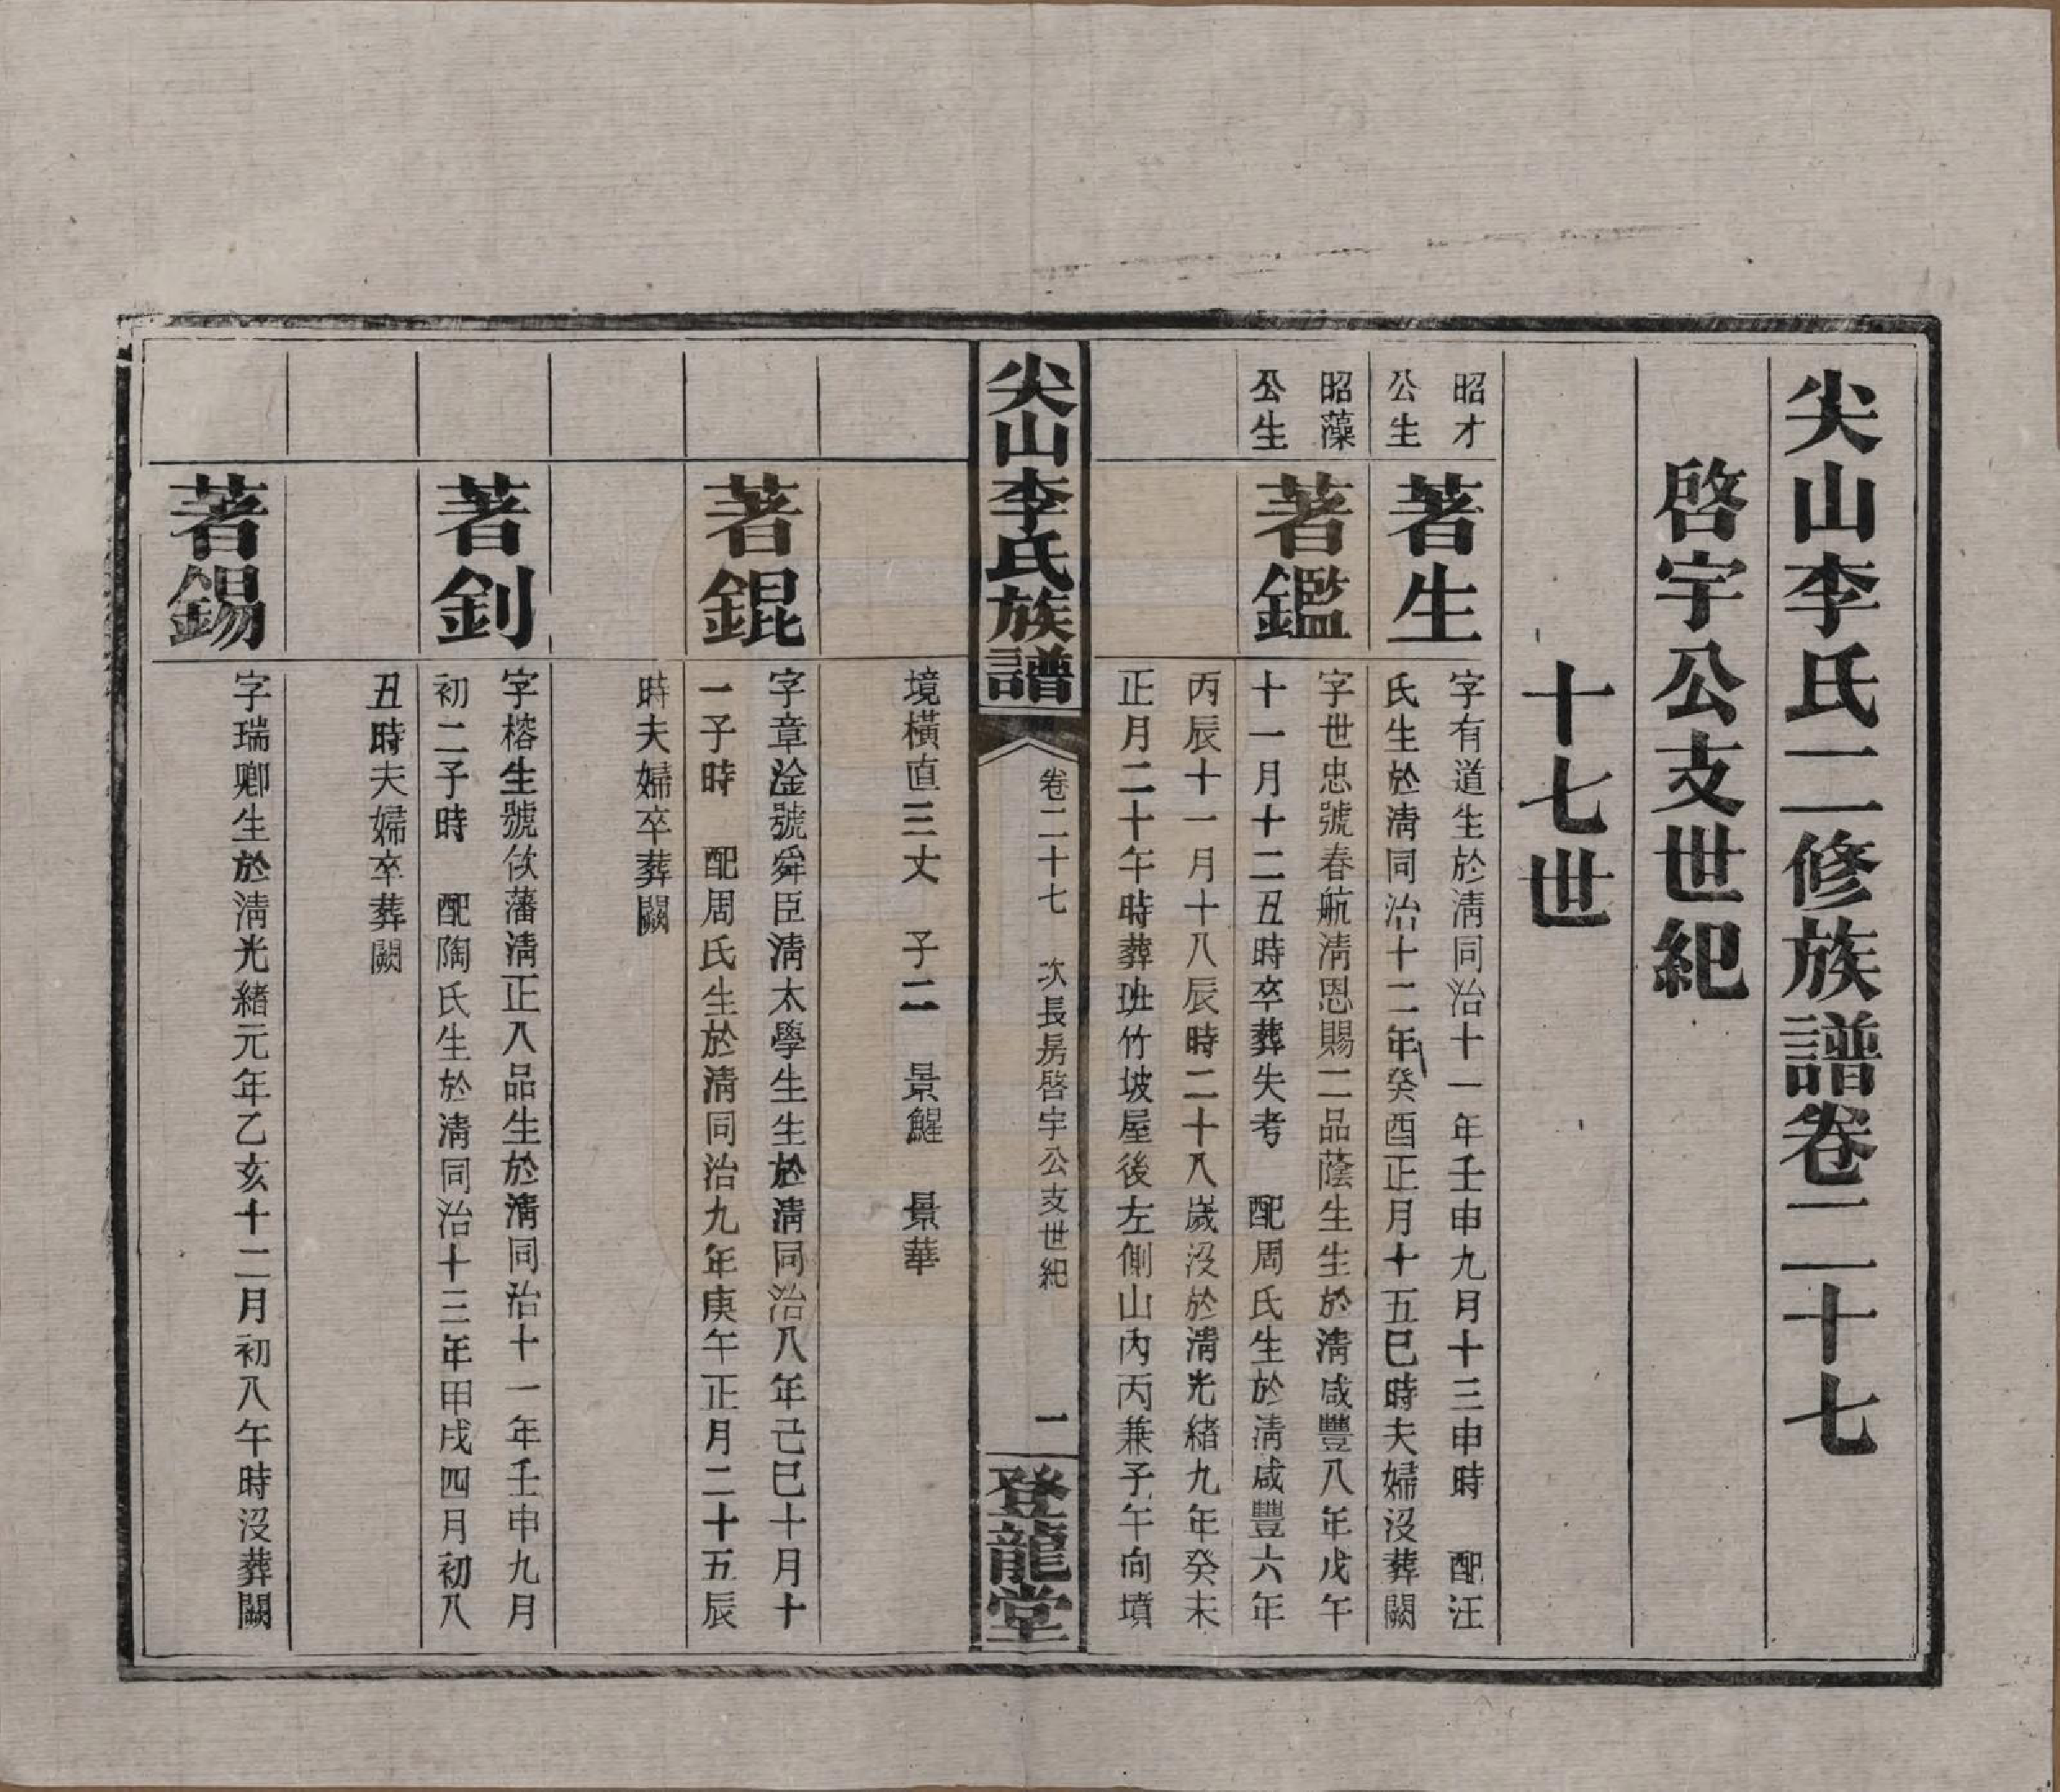 尖山李氏二修族譜卷二十七
啓宇公支世紀
十七世
昭才
公生
著生
字有道生於淸同治十一年壬申九月十三申時　配汪
氏生於淸同治十二年癸酉正月十五巳時夫婦沒葬闕
昭藻
公生
著鑑
字世忠號春航淸恩賜二品蔭生生於淸咸豐八年戊午
十一月十二丑時卒葬失考　配周氏生於淸咸豐六年
丙辰十一月十八辰時二十八歲沒於淸光緒九年癸未
正月二十午時葬班竹坡屋後左側山內丙兼子午向墳
尖山李氏族譜
卷二十七　次長房啓宇公支世紀
一
登龍堂
境橫直三丈　子二　景鯹　景華
著錕
字章淦號舜臣淸太學生生於淸同治八年己巳十月十
一子時　配周氏生於淸同治九年庚午正月二十五辰
時夫婦卒葬闕
著釗
字榕生號佽藩淸正八品生於淸同治十一年壬申九月
初二子時　配陶氏生於淸同治十三年甲戌四月初八
丑時夫婦卒葬闕
著錫
字瑞卿生於淸光緒元年乙亥十二月初八午時沒葬闕